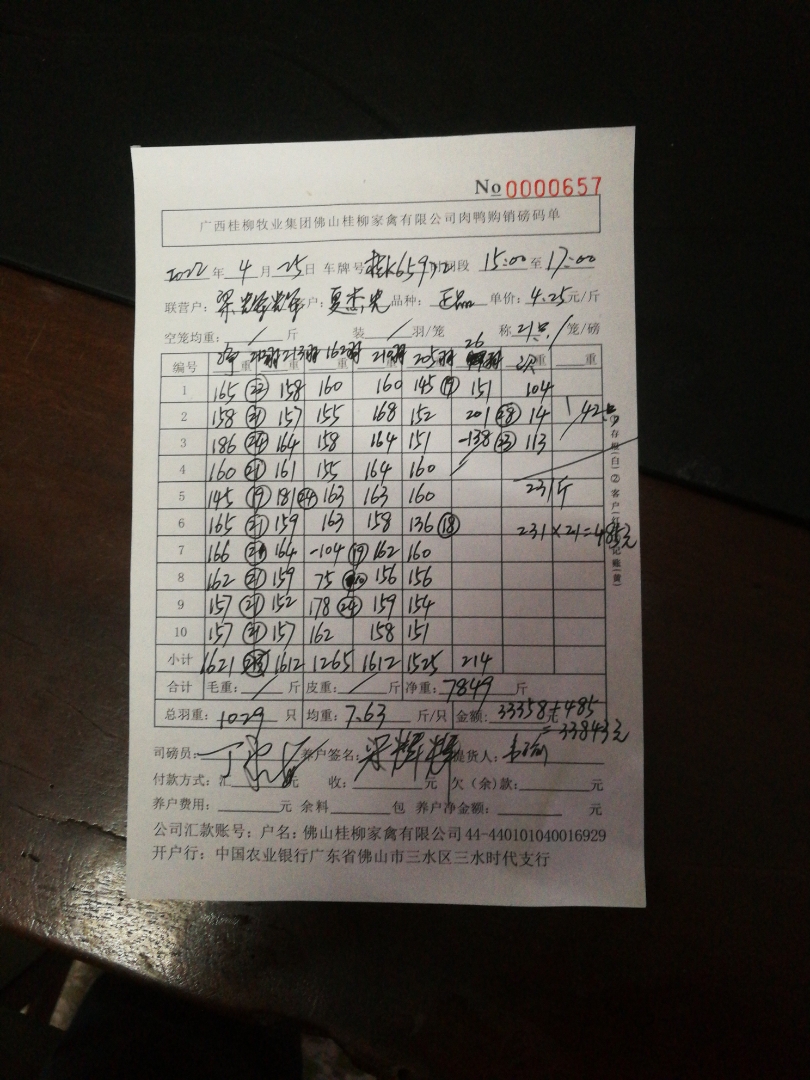 No 0000657
广西桂柳牧业集团佛山桂柳家禽有限公司肉鸭购销磅码单
2022 年 4 月 25 日 车牌号 桂K659 时间段 15:00 至 17:00
联营户: 客户: 夏杰光 品种: 正品 单价: 4.25 元/斤
空笼均重: / 斤 装 / 羽/笼 称 / 笼/磅
编号 净重 213羽 162羽 210羽 205羽 26 重 重
1 165 158 160 160 145 151 104
2 158 21 157 155 168 152 201 28 14
3 186 24 164 158 164 151 -138 23 113
4 160 21 161 155 164 160
5 145 19 181 24 163 163 160 231斤
6 165 21 159 163 158 136 18 231×21=485元
7 166 164 -104 19 162 160
8 162 21 159 75 156 156
9 157 21 152 178 24 159 154
10 157 21 157 162 158 151
小计 1621 1612 1265 1612 1525 214
合计 毛重: / 斤 皮重: / 斤 净重: 7849 斤
总羽重: 1029 只 均重: 7.63 斤/只 金额: 33358+485
=33843元
司磅员: 养户签名: 提货人:
付款方式: 汇 元 收: 元 欠(余)款: 元
养户费用: 元 余料 包 养户净金额: 元
公司汇款账号: 户名: 佛山桂柳家禽有限公司 44-440101040016929
开户行: 中国农业银行广东省佛山市三水区三水时代支行